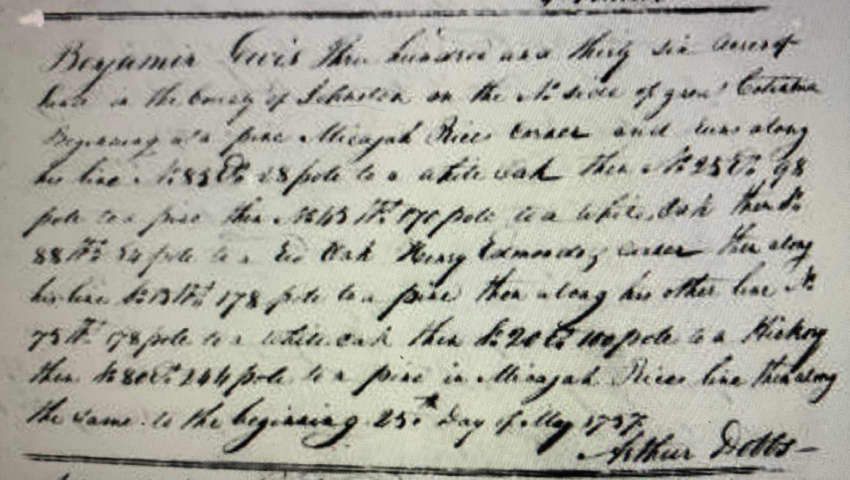 Benjamin three hundred and thirty six acres of
land in the County of Johnston on the No. side of great
Beginning at a pine Micajah Rices Corner and runs along
his line No. 85 Et. pole to a white Oak then No. 25 Et. 98
pole to a pine then No. 45 Wt. 170 pole to a White Oak then So.
88 Wt. 54 pole to a Red Oak Henry Edmonds Corner then along
his line So. 13 Wt. 178 pole to a pine then along his other line No.
75 Wt. 178 pole to a White oak then So. 20 Et. 100 pole to a Hickory
then So. 80 Et. 244 pole to a pine in Micajah Rices line then along
the same to the beginning 25th Day of May 1757
Arthur Dobbs